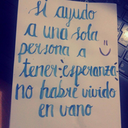 Si ayudo
a una sola
persona a
tener esperanza
no habré vivido
en vano